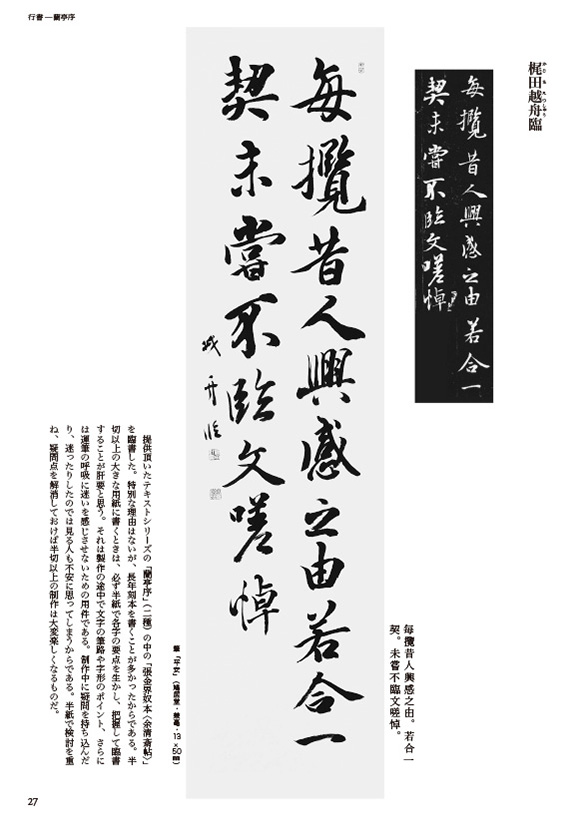 行書―蘭亭序
梶田越舟臨
かじたえつしゅう
每攬昔人興感之由若合一
契未嘗不臨文嗟悼
每攬昔人興感之由若合一
契未嘗不臨文嗟悼
越舟臨
每攬昔人興感之由。若合一
契。未嘗不臨文嗟悼。
筆「平安」（鳩居堂・兼毫・13×50㎜）
提供頂いたテキストシリーズの「蘭亭序」（二種）の中の「張金界奴本〈余清斎帖〉」
を臨書した。特別な理由はないが、長年刻本を書くことが多かったからである。半
切以上の大きな用紙に書くときは、必ず半紙で各字の要点を生かし、把握して臨書
することが肝要と思う。それは製作の途中で文字の筆路や字形のポイント、さらに
は運筆の呼吸に迷いを感じさせないための用件である。制作中に疑問を持ち込んだ
り、迷ったりしたのでは見る人も不安に思ってしまうからである。半紙で検討を重
ね、疑問点を解消しておけば半切以上の制作は大変楽しくなるものだ。
27